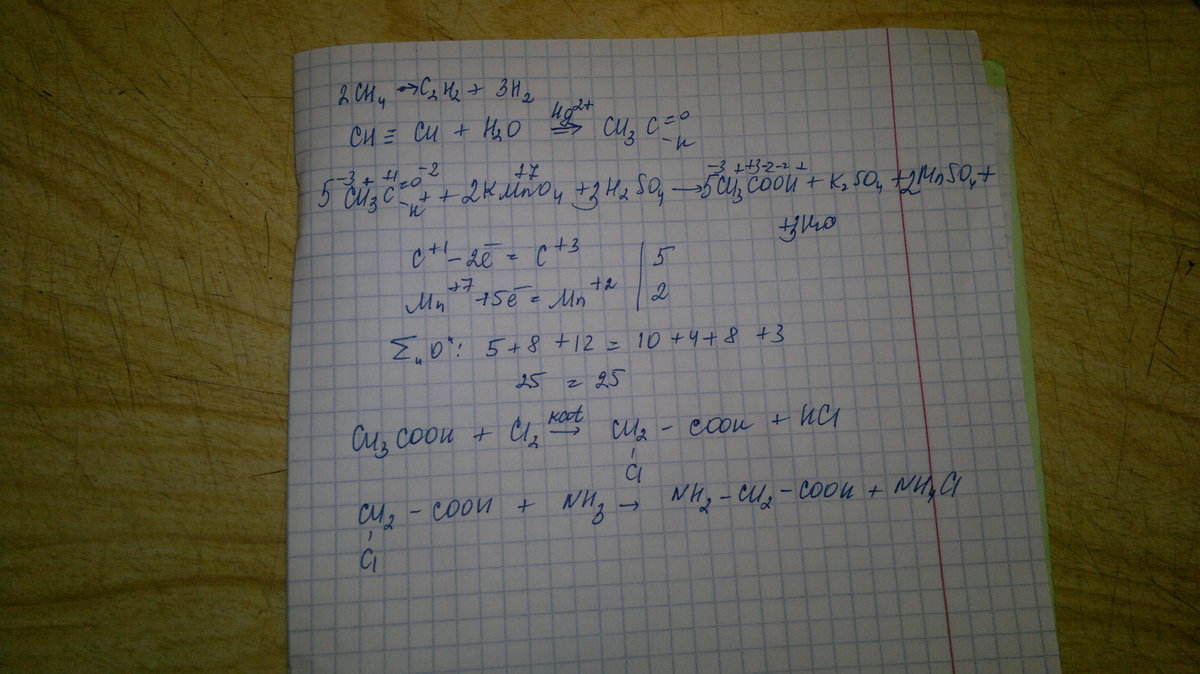 2CH₄ → C₂H₂ + 3H₂
CH ≡ CH + H₂O ⇒ CH₃ C =O -H
Hg²⁺
5 CH₃C =O -H + 2KMnO₄ + 3H₂SO₄ → 5CH₃COOH + K₂SO₄ + 2MnSO₄ +
-3 + +1 -2 + +7 -3 + +3 -2 -2 +
+3H₂O
C⁺¹ - 2ē = C⁺³ | 5
Mn⁺⁷ + 5ē = Mn⁺² | 2
Σ "O": 5 + 8 + 12 = 10 + 4 + 8 + 3
25 = 25
CH₃COOH + Cl₂ →кат CH₂ - COOH + HCl
Cl
CH₂ - COOH + NH₃ → NH₂ - CH₂ - COOH + NH₄Cl
Cl